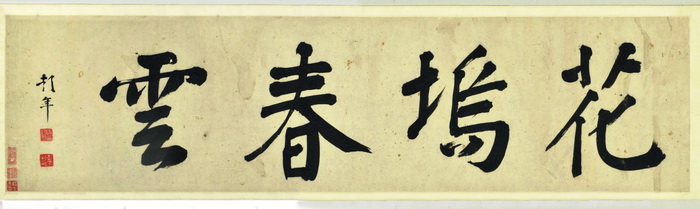 花塢春雲
彭年